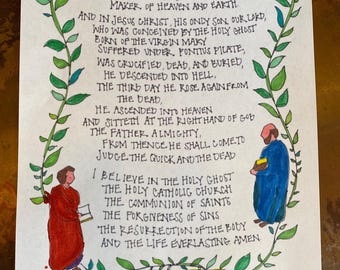 MAKER OF HEAVEN AND EARTH
AND IN JESUS CHRIST, HIS ONLY SON OUR LORD,
WHO WAS CONCEIVED BY THE HOLY GHOST
BORN OF THE VIRGIN MARY
SUFFERED UNDER PONTIUS PILATE,
WAS CRUCIFIED, DEAD, AND BURIED,
HE DESCENDED INTO HELL,
THE THIRD DAY HE ROSE AGAIN FROM
THE DEAD,
HE ASCENDED INTO HEAVEN
AND SITTETH AT THE RIGHT HAND OF GOD
THE FATHER ALMIGHTY,
FROM THENCE HE SHALL COME TO
JUDGE THE QUICK AND THE DEAD
I BELIEVE IN THE HOLY GHOST
THE HOLY CATHOLIC CHURCH
THE COMMUNION OF SAINTS
THE FORGIVENESS OF SINS
THE RESURRECTION OF THE BODY
AND THE LIFE EVERLASTING AMEN.